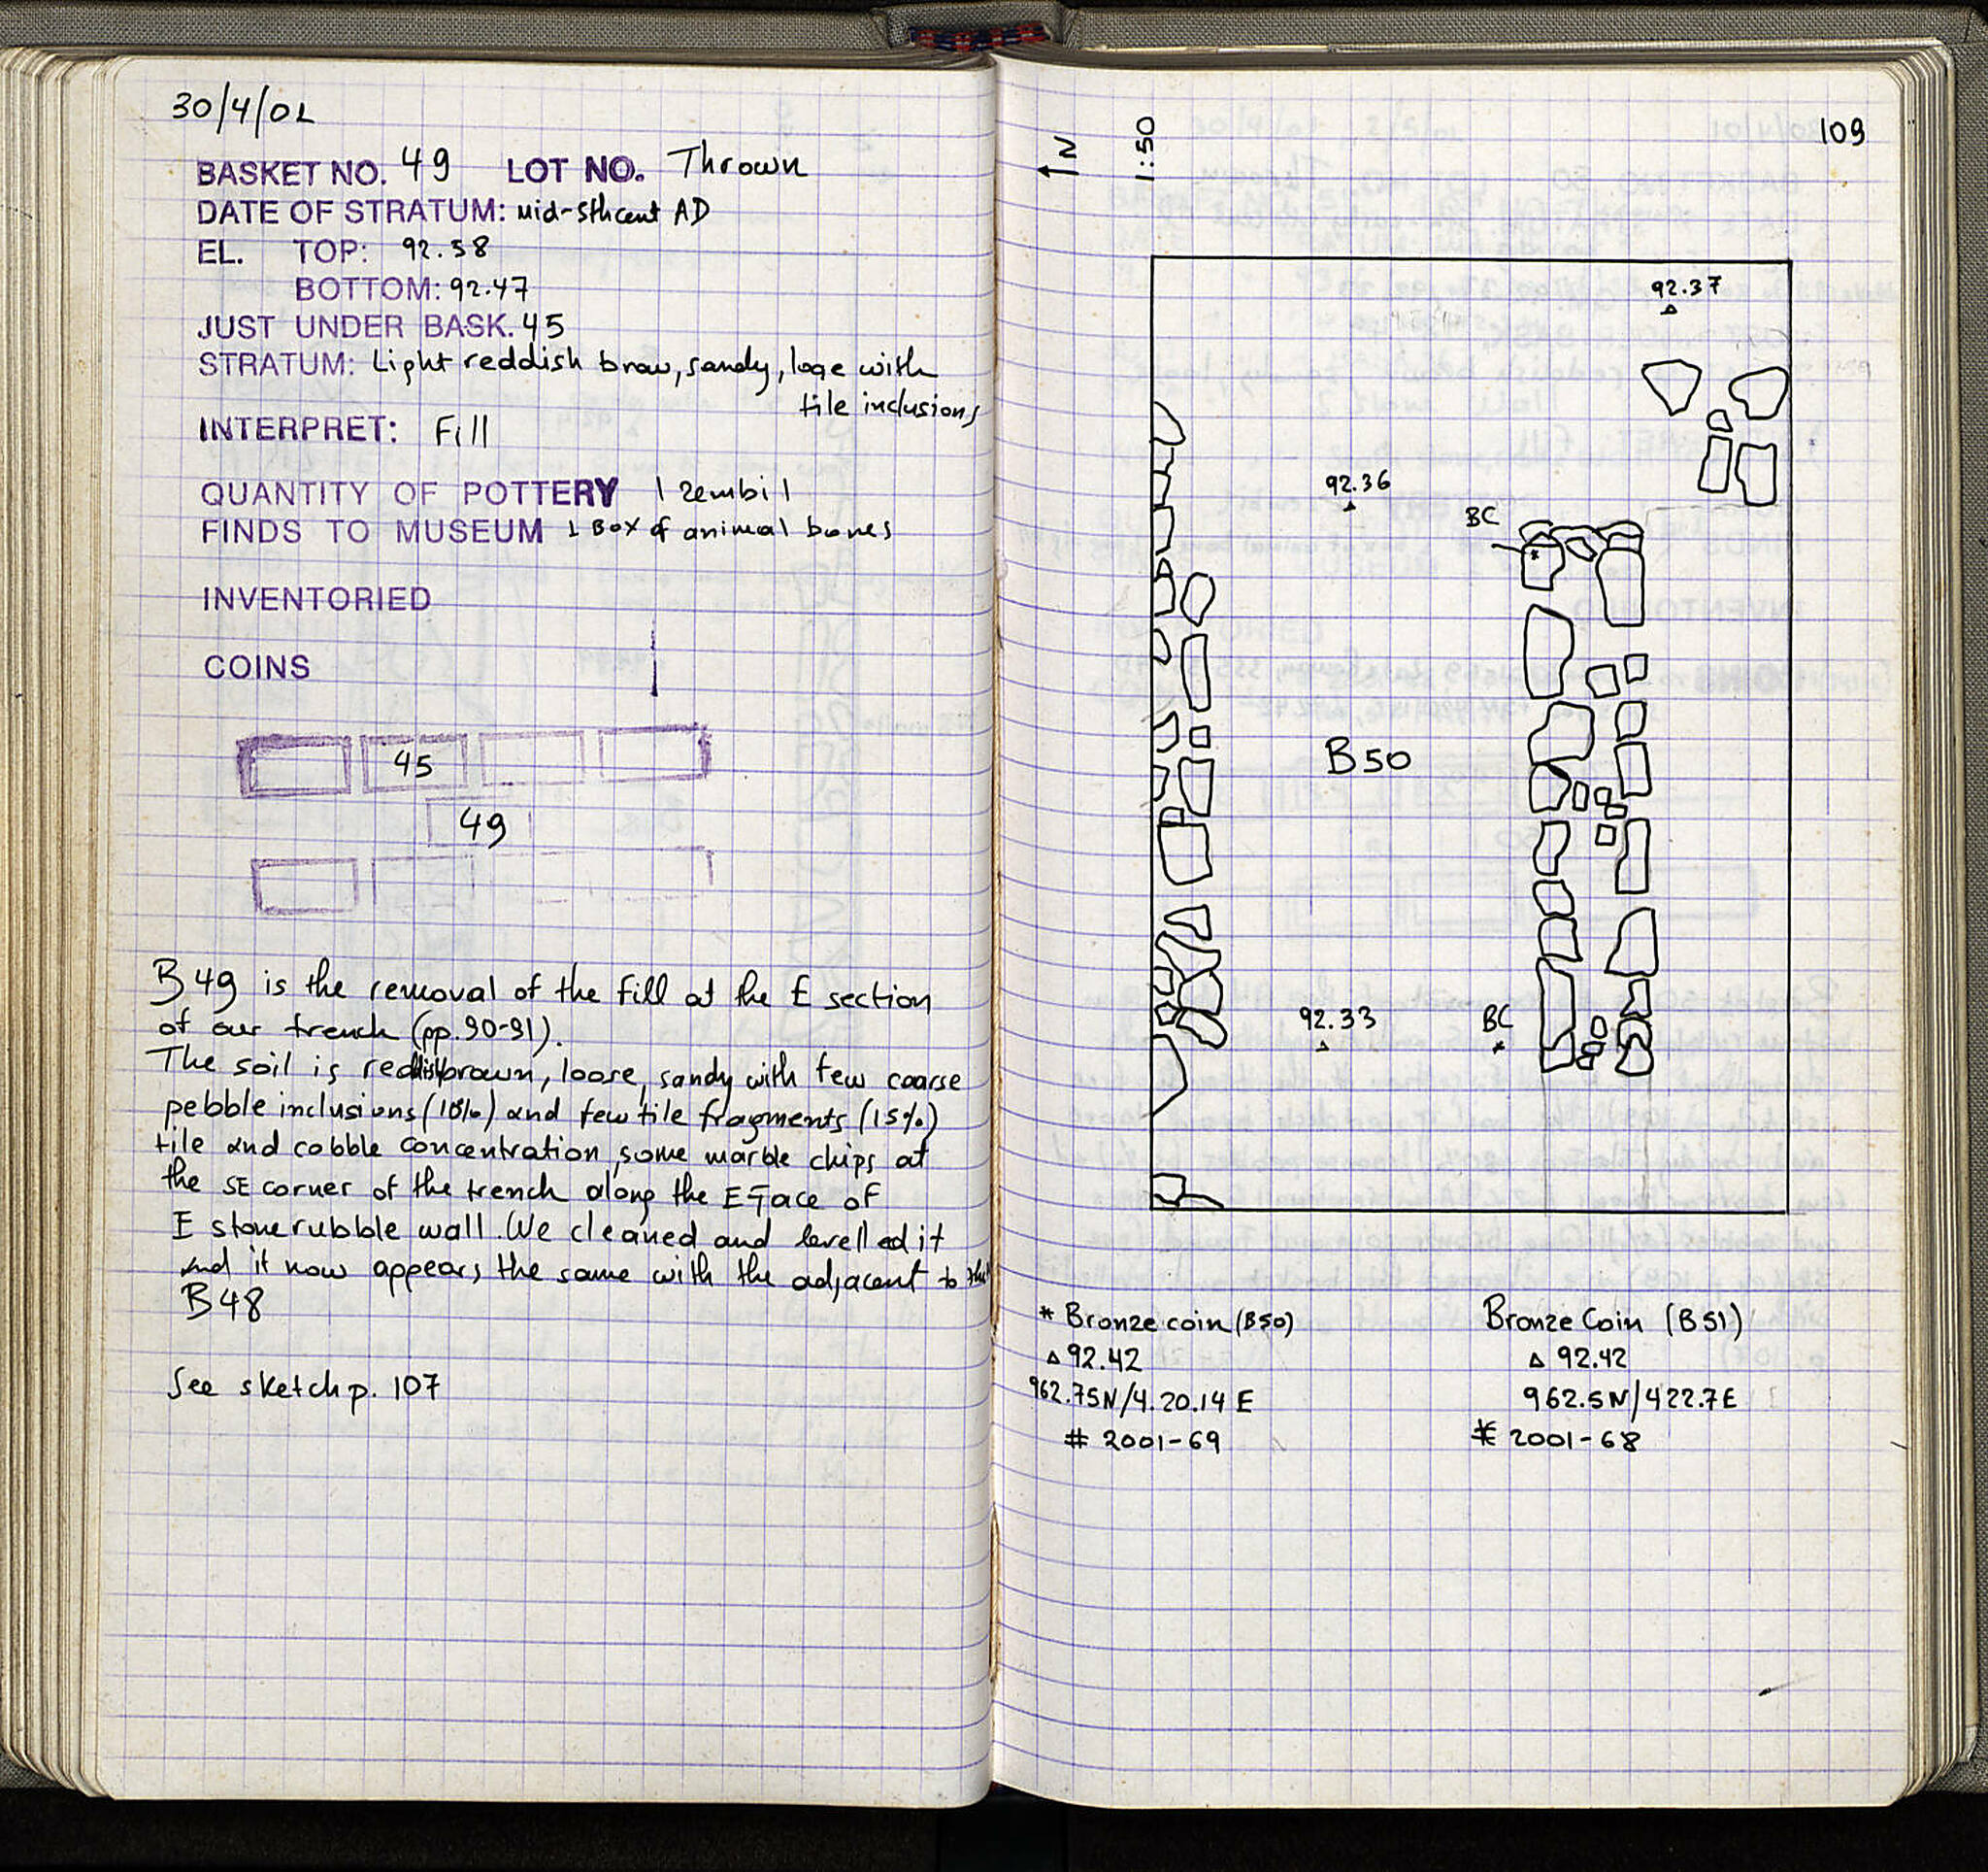 30/4/01
BASKET NO. 49 LOT NO. Thrown
DATE OF STRATUM: mid-5thcent AD
EL. TOP: 92.58
BOTTOM: 92.47
JUST UNDER BASK. 45
STRATUM: Light reddish brow, sandy, loqe with
tile inclusions
INTERPRET: Fill
QUANTITY OF POTTERY 1 zembil
FINDS TO MUSEUM 1 Box of animal bones
INVENTORIED
COINS
45
49
B 49 is the removal of the fill at the E section
of our trench (pp.90-91).
The soil is reddishbrown, loose, sandy with few coarse
pebble inclusions (10%) and few tile fragments (15%)
tile and cobble concentration, some marble chips at
the SE corner of the trench along the E face of
E stone rubble wall. We cleaned and levelled it
and it now appears the same with the adjacent to that
B48
See sketch p. 107
109
N
1:50
92.37
92.36
BC
B50
92.33
BC
* Bronze coin (B50)
△ 92.42
962.75N/4.20.14 E
# 2001-69
Bronze Coin (B51)
△ 92.42
962.5N/422.7E
# 2001-68